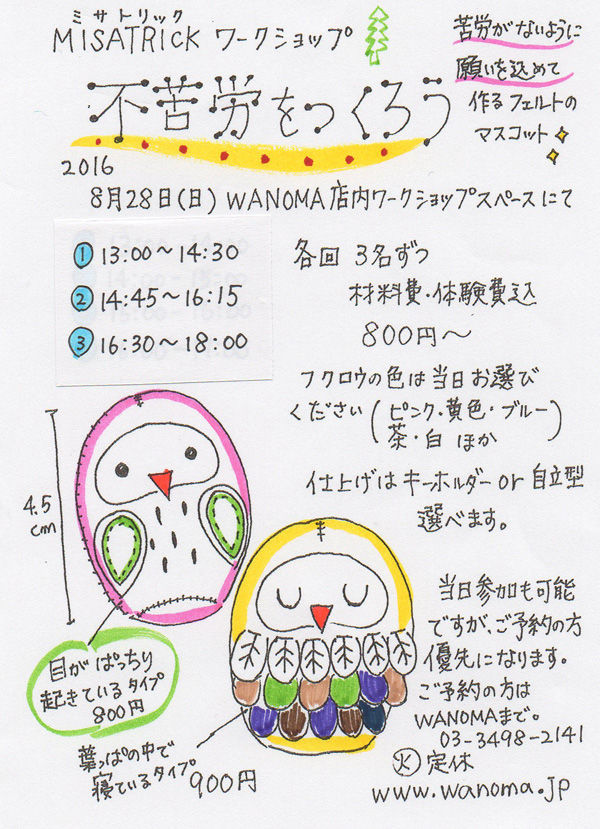 ミサトリック
MISATRICK ワークショップ
不苦労をつくろう
苦労がないように
願いを込めて
作るフェルトの
マスコット
2016
8月28日(日) WANOMA店内ワークショップスペースにて
① 13:00〜14:30
② 14:45〜16:15
③ 16:30〜18:00
各回 3名ずつ
材料費・体験費込
800円〜
フクロウの色は当日お選び
ください(ピンク・黄色・ブルー
茶・白 ほか)
仕上げはキーホルダー or 自立型
選べます。
4.5
cm
目がぱっちり
起きているタイプ
800円
葉っぱの中で
寝ているタイプ 900円
当日参加も可能
ですが、ご予約の方
優先になります。
ご予約の方は
WANOMAまで。
03-3498-2141
㊋定休
www.wanoma.jp